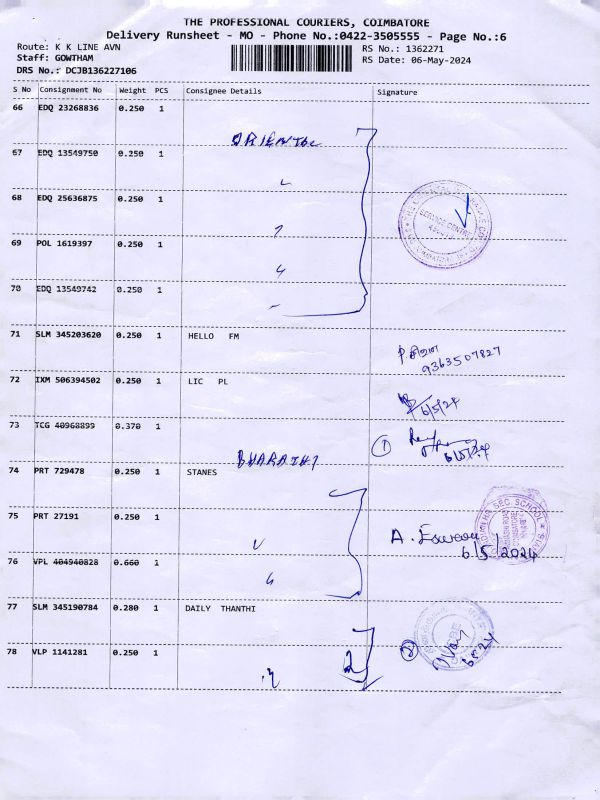 THE PROFESSIONAL COURIERS, COIMBATORE
Delivery Runsheet - MO - Phone No.:0422-3505555 - Page No.:6
Route: K K LINE AVN
RS No.: 1362271
Staff: GOWTHAM
RS Date: 06-May-2024
DRS No.: DCJB136227106
S No Consignment No Weight PCS Consignee Details Signature
66 EDQ 23268836 0.250 1
ORIENTAL
67 EDQ 13549750 0.250 1
68 EDQ 25636875 0.250 1
SERVICE CENTRE
69 POL 1619397 0.250 1
70 EDQ 13549742 0.250 1
71 SLM 345203620 0.250 1 HELLO FM
9363507827
72 IXM 506394502 0.250 1 LIC PL
6/5/24
73 TCG 40968899 0.370 1
1
BHARATHI
74 PRT 729478 0.250 1 STANES
75 PRT 27191 0.250 1
SEC. SCHOOL
A. Eswari
6/5/2024
76 VPL 404940828 0.660 1
77 SLM 345190784 0.280 1 DAILY THANTHI
78 VLP 1141281 0.250 1
2
2